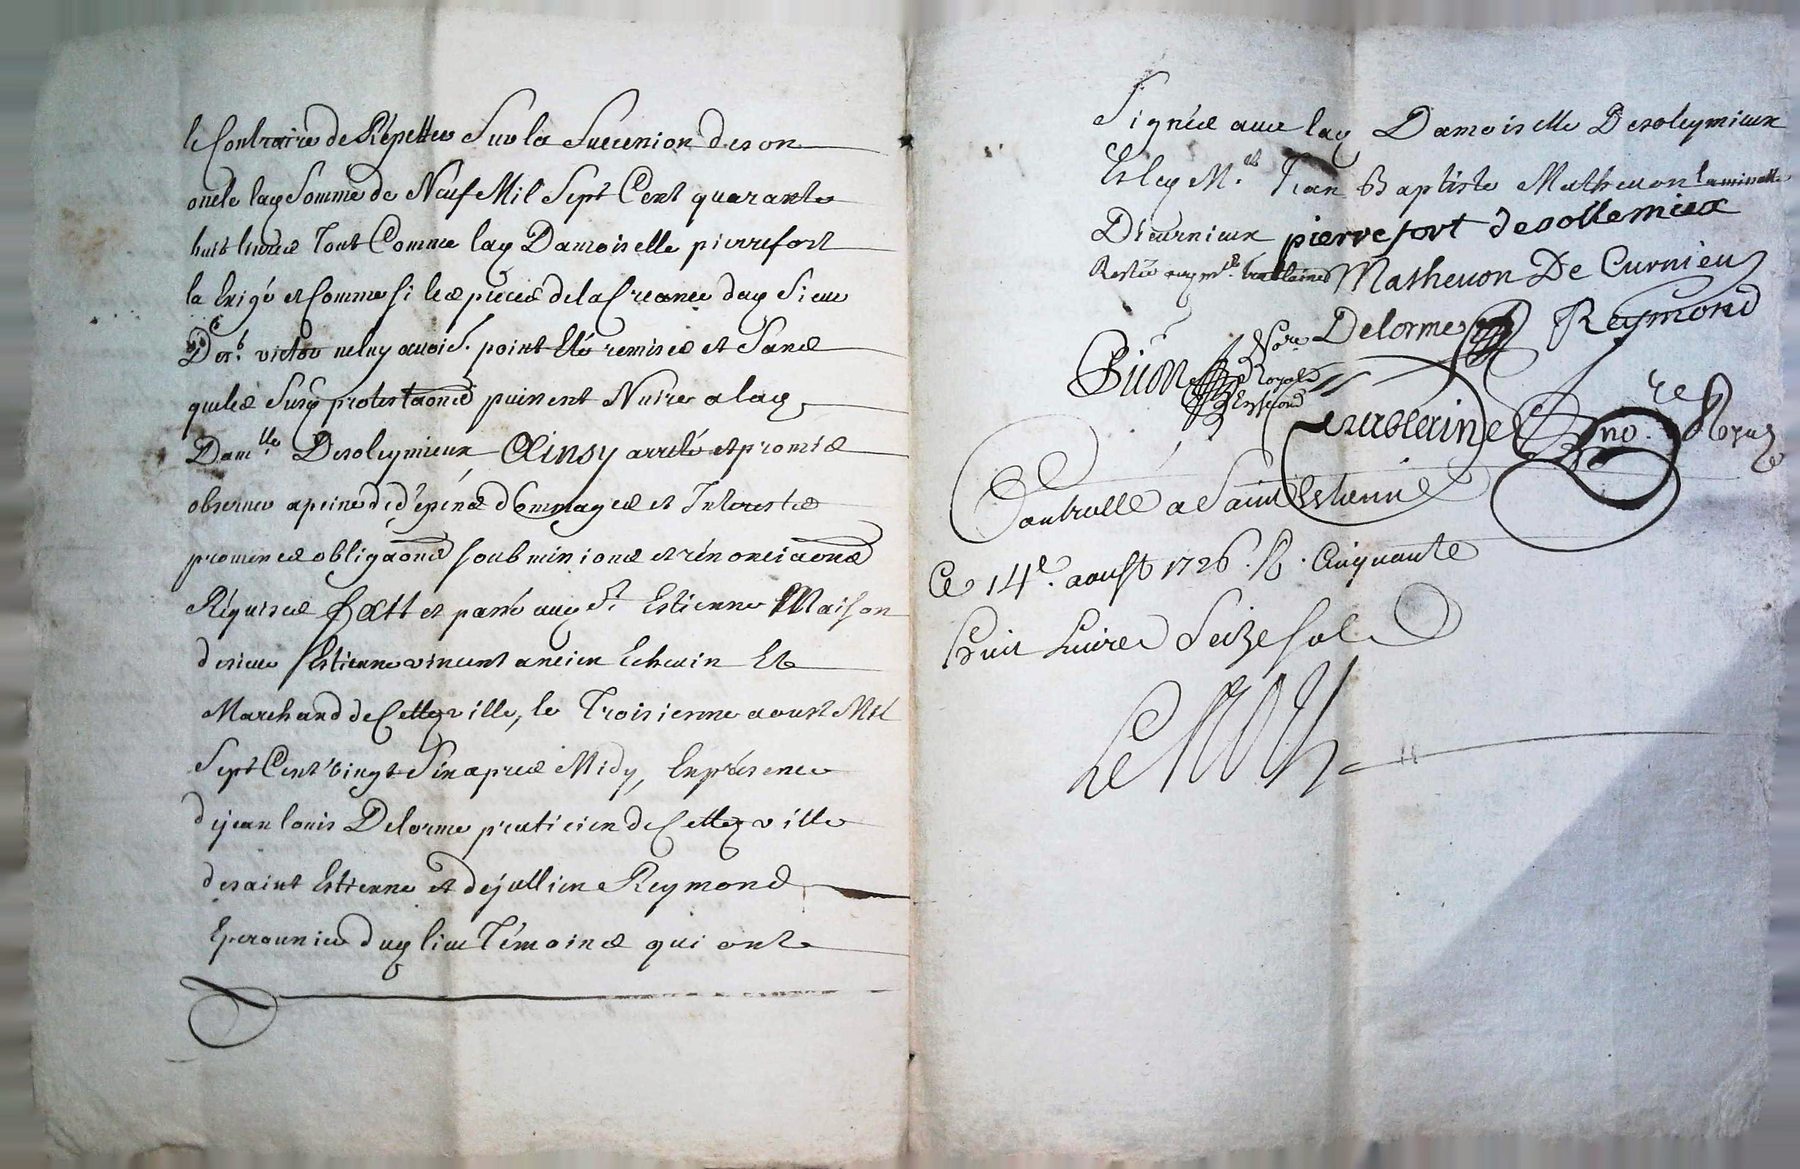 le Contraire de Répetter Sur la Succession de son
oncle lad Somme de Neuf Mil Sept Cent quarante
huit livres Tout Comme lad Damoiselle pierrefort
la Exigé et Comme si les pieces de la Creance dud Sieur
De St. victor ne luy avoit point Eté remises et Sans
que les Susd protestaons puissent Nuire a lad
Damlle Desoleymieux Ainsy arrêté et promis
observer a peine de dépens dommages et Interests
promesses obligaons soubmissions et rénonciaons
Réquises fait et passé aud St Estienne Maison
de sieur Estienne vincent ancien Echevin Et
Marchand de Cette ville, le Troisieme aoust Mil
Sept Cent vingt Six apres Midy, En présence
de jean louis Delorme praticien de Cette ville
de saint Estienne et de jullien Reymond
Eperounier dud lieu Témoins qui ont
Signés avec lad Damoiselle Desoleymieux
Et led Mre Jean Baptiste Matheuon
Dicurnieux pierrefort desollemieux
Matheuon De Curnieu
Delorme Raymond
Nore Royal
no. re Royal
Controllé a Saint Estienne
Ce 14e. aoust 1726. R. Cinquante
huit Livres Seize sols